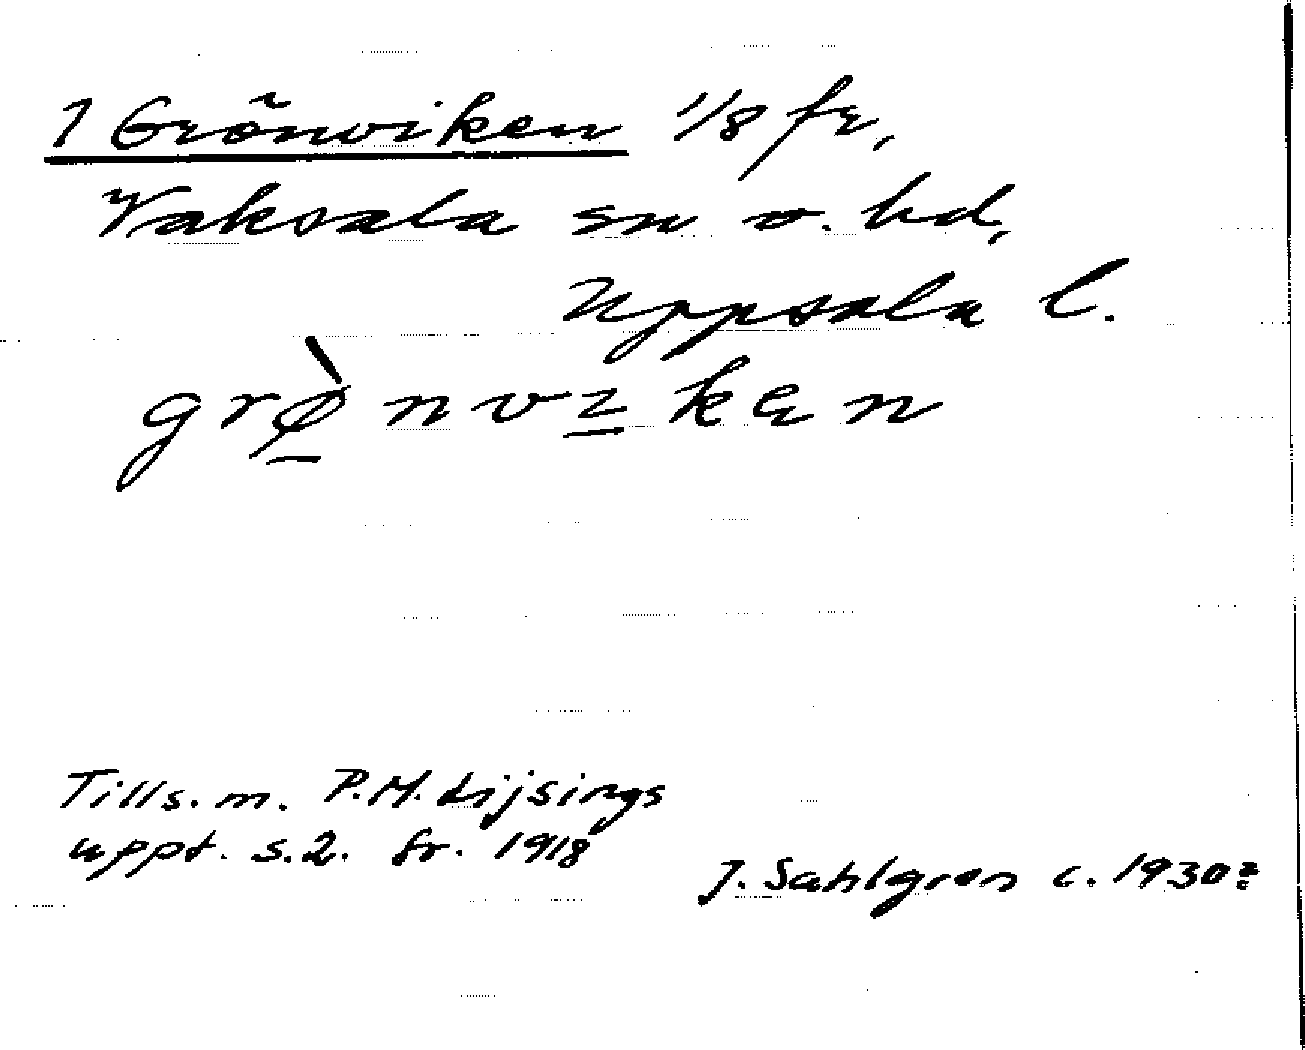 1 Grönviken 1/8 fr,
Vaksala sn o. hd,
Uppsala l.
grø̀nvıken
Tills. m. P.M. Lijsings
uppt. s.2. fr. 1918
J. Sahlgren c. 1930?